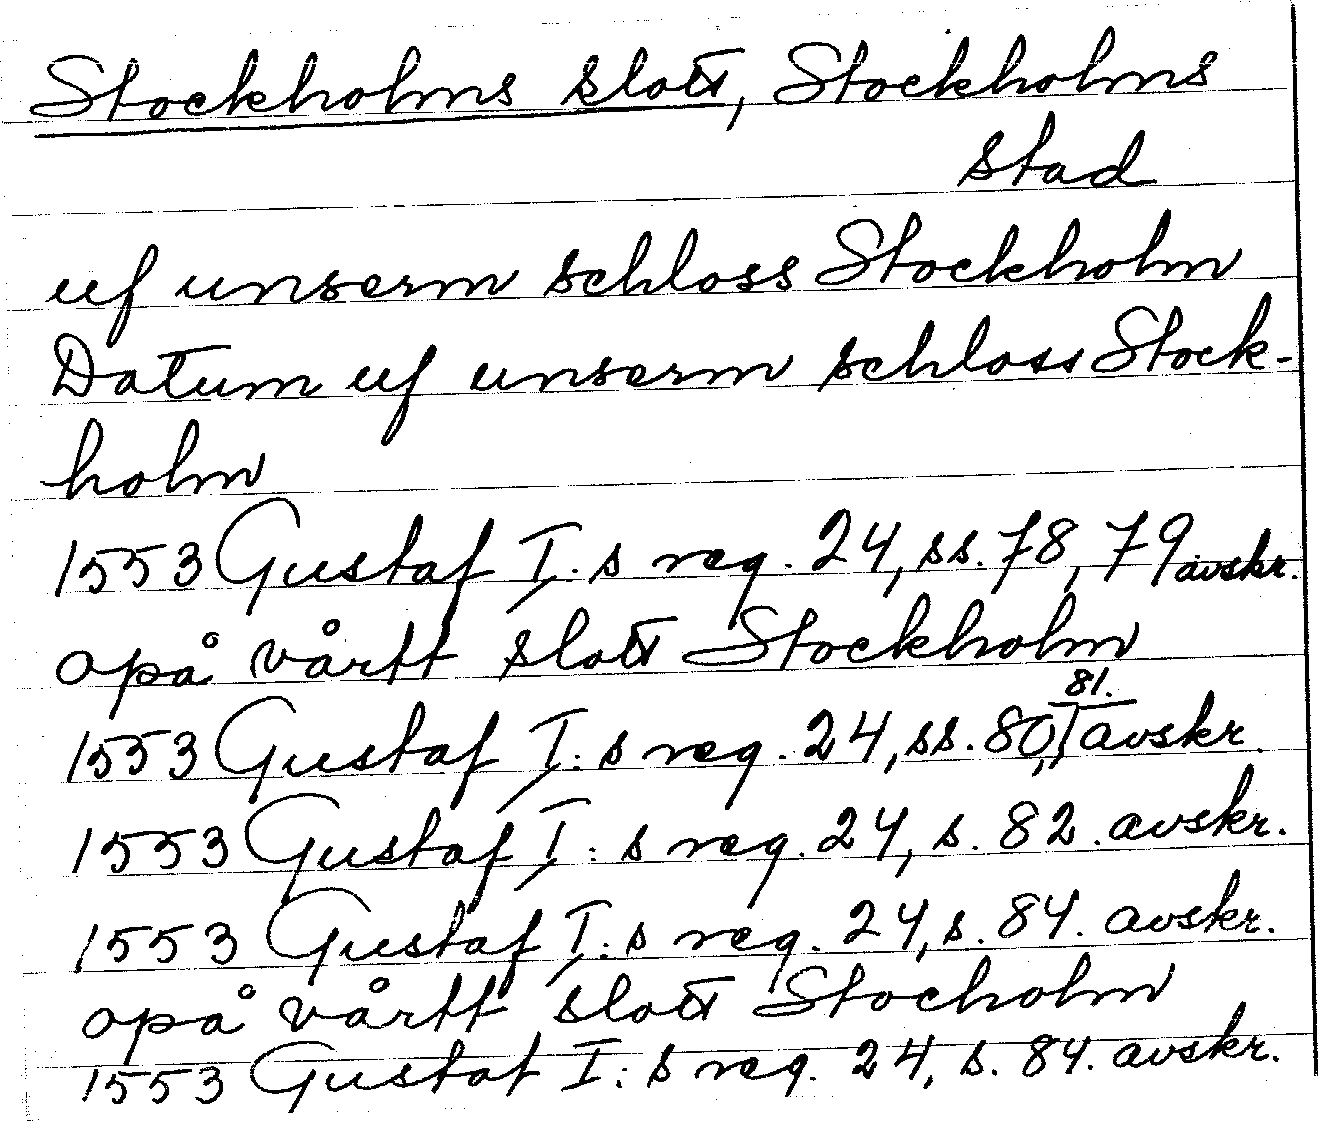 Stockholms slott, Stockholms
stad
uf unserm schloss Stockholm
Datum uf unserm schloss Stock-
holm
1553 Gustaf I:s reg. 24, ss. 78, 79 avskr.
opå vårtt slott Stockholm
1553 Gustaf I:s reg. 24, ss. 80, 81. avskr.
1553 Gustaf I:s reg. 24, s. 82. avskr.
1553 Gustaf I:s reg. 24, s. 84. avskr.
opå vårtt slott Stocholm
1553 Gustaf I:s reg. 24, s. 84. avskr.